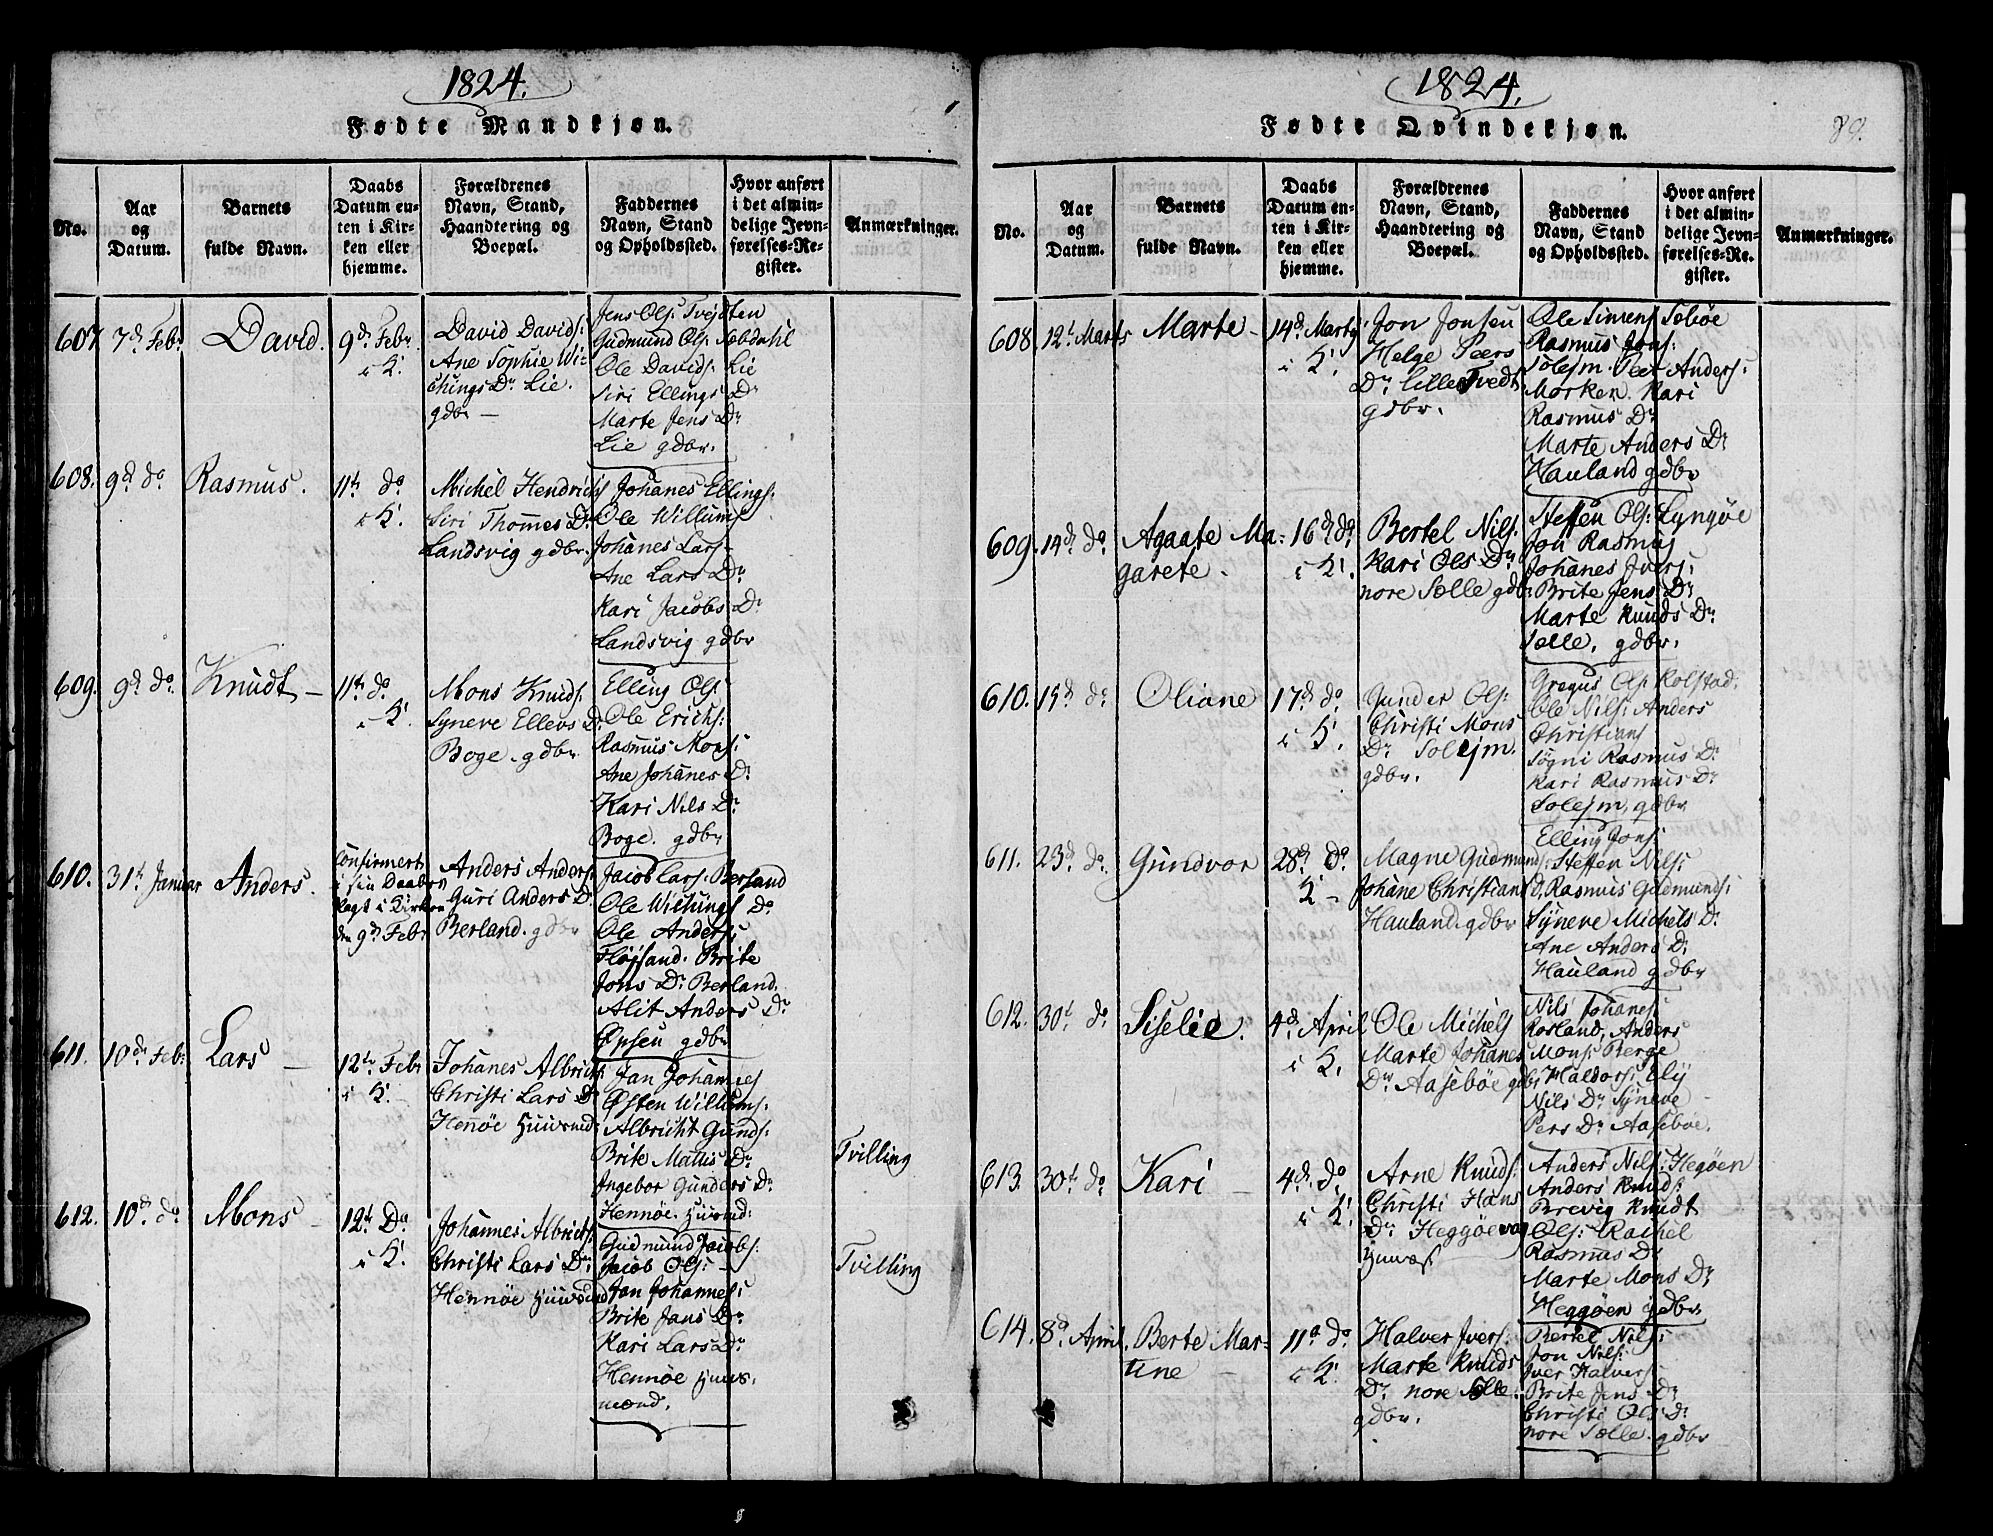 1824.
Fødte Mandkjøn.
No.
Aar
og
Datum.
Barnets
fulde Navn.
Daabs
Datum en-
ten i Kir-
ken eller
hjemme.
Forældrenes
Navn, Stand,
Haandtering og
Boepæl.
Faddernes
Navn, Stand
og Opholdssted.
Hvor anført
i det almin-
delige Jevn-
førelses-Re-
gister.
Anmærkninger.
607 7de Febr
David.
9d Febr
i K.
David Davids:
Ane Sophie Wi-
chings Dr Lie.
gdbr
Jens Ols: Tvejdten
Gudmund Ols: Aebdahl
Ole Davids: Lie
Siri Ellings Dr
Marte Jens Dr
Lie gdbr.
608. 9d do
Rasmus.
11te do
i K.
Michel Hendrichs
Siri Thomes Dr
Landsvig gdbr.
Johanes Ellings:
Ole Willums
Johanes Lars
Ane Lars Dr
Kari Jacobs Dr
Landsvig gdbr
609. 9d do
Knudt
11te do
i K.
Mons Knuds:
Syneve Ellevs D.
Boge. gdbr
Elling Ols:
Ole Erichs:
Rasmus Mons:
Ane Johanes Dr
Kari Nils Dr
Boge. gdbr
610. 31te Januar
Anders.
Confirmert
i sin Daab
lagt i Kirken
den 9d Febr
Anders Anders:
Guri Anders Dr
Berland. gdbr
Jacob Lars: Berland
Ole Wichings do
Ole Anders:
Fløjsand. Brite
Jons Dr Berland.
Alit Anders Dr
Opsen gdbr
611. 10de Feb:
Lars
12te Febr
i K.
Johanes Albrichs:
Christi Lars Dr
Henøe Huusmd:
Jan Johannes
Østen Willums:
Albricht Gunds:
Brite Mattis Dr
Ingebor Gunders Dr
Hennøe. Huusmd:
Tvilling
612. 10de do
Mons
12te Do
i K.
Johannes Albrichs:
Christi Lars Dr
Hennøe Huusmd
Gudmund Jacobs:
Jacob Ols:
Jan Johannes:
Brite Jans Dr
Kari Lars Dr
Hennøe Huus,
mænd.
Tvilling
1824.
Fødte Qvindekjøn.
89.
No.
Aar
og
Datum.
Barnets
fulde Navn.
Daabs
Datum en-
ten i Kir-
ken eller
hjemme.
Forældrenes
Navn, Stand,
Haandtering og
Boepæl.
Faddernes
Navn, Stand
og Opholdssted.
Hvor anført
i det almin-
delige Jevn-
førelses-Re-
gister.
Anmærkninger.
608. 12t Marts
Marte
14d Marty
i K.
Jon Jonsen
Helge Peers
Dr Lille Tvedt
gdbr.
Ole Simens Sebøe
Rasmus Jons:
Solejm. Peer Anders:
Morken. Kari
Rasmus Dr
Marte Anders Dr
Hauland gdbr
609. 14d do
Agaate Ma-
garete.
16d do
i K.
Bertel Nils:
Kari Ols Dr
nore Sælle gdbr
Steffen Ols: Lyngøe
Jon Rasmus
Johanes Ivers:
Brite Jens Dr
Marte Knuds Dr
Sælle. gdbr.
610. 15d do
Oliane
17d do
i K.
Gunder Ols:
Christi Mons
Dr Solejm.
gdbr.
Gregus Ols: Kolstad.
Ole Nils: Anders
Christians
Søgni Rasmus Dr
Kari Rasmus Dr
Solejm, gdbr
611. 23d do
Gundvor
28d do
K
Magne Gudmunds:
Johane Christians D.
Hauland. gdbr
Elling Jons:
Steffen Nils:
Rasmus Gudmunds:
Syneve Michels Dr
Ane Anders Dr
Hauland gdbr
612. 30t do
Siselie.
4d April
i K.
Ole Michels
Marte Johanes
Dr Aasebøe gdbr
Nils Johanes:
Rosland, Anders
Mons: Berge
Haldors: Elij
Nils Dr Syneve
Pers Dr Aasebøe.
613. 30te do
Kari
4d do
i K.
Arne Knuds:
Christi Hans
Dr Heggøe vog
Huusf
Anders Nils: Hegøen
Anders Knuds:
Brevig Knudt
Ols: Rachel
Rasmus Dr
Marte Mons Dr
Heggøen gdbr
614. 8d April.
Berte Mar-
tine
11d do
i K.
Halver Ivers:
Marte Knuds
Dr nore Sælle.
gdbr.
Bertel Nils:
Jon Nils:
Iver Halvers:
Brite Jens Dr
Christi Ols Dr
nore Sælle. gdbr